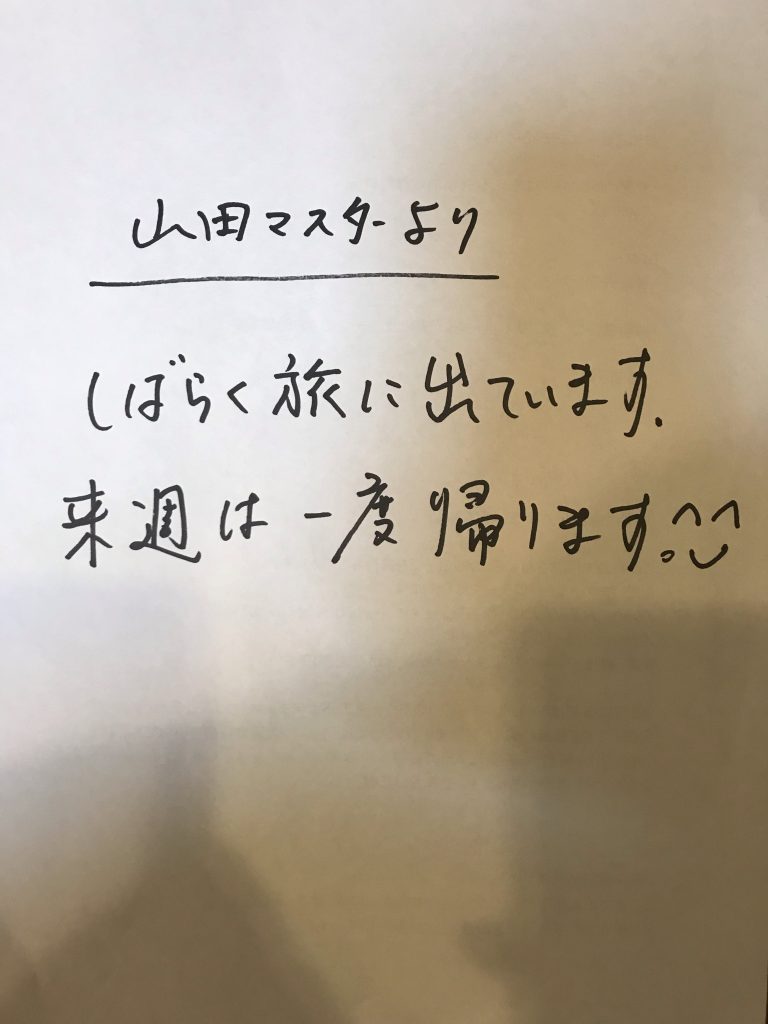 山田マスターより
しばらく旅に出ています.
来週は一度帰ります。^^